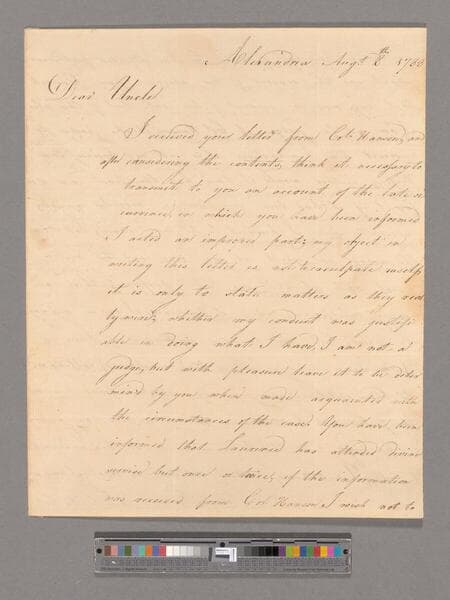 Alexandria Augt 8th
Dear Uncle
I received your letter from Colo Hanson, and
after considering the contents, think it necessary to
transmit to you an account of the late oc
currence, in which you have been informed
I acted an improper part; my object in
writing this letter is not to exculpate myself,
it is only to state matters as they real
ly were; whether my conduct was justifi
able in doing what I have, I am not a
judge, but with pleasure leave it to be deter
mined by you when made acquainted with
the circumstances of the case. You have been
informed that has attended divine
service but once or twice; if the information
was received from Colo Hanson I wish not to